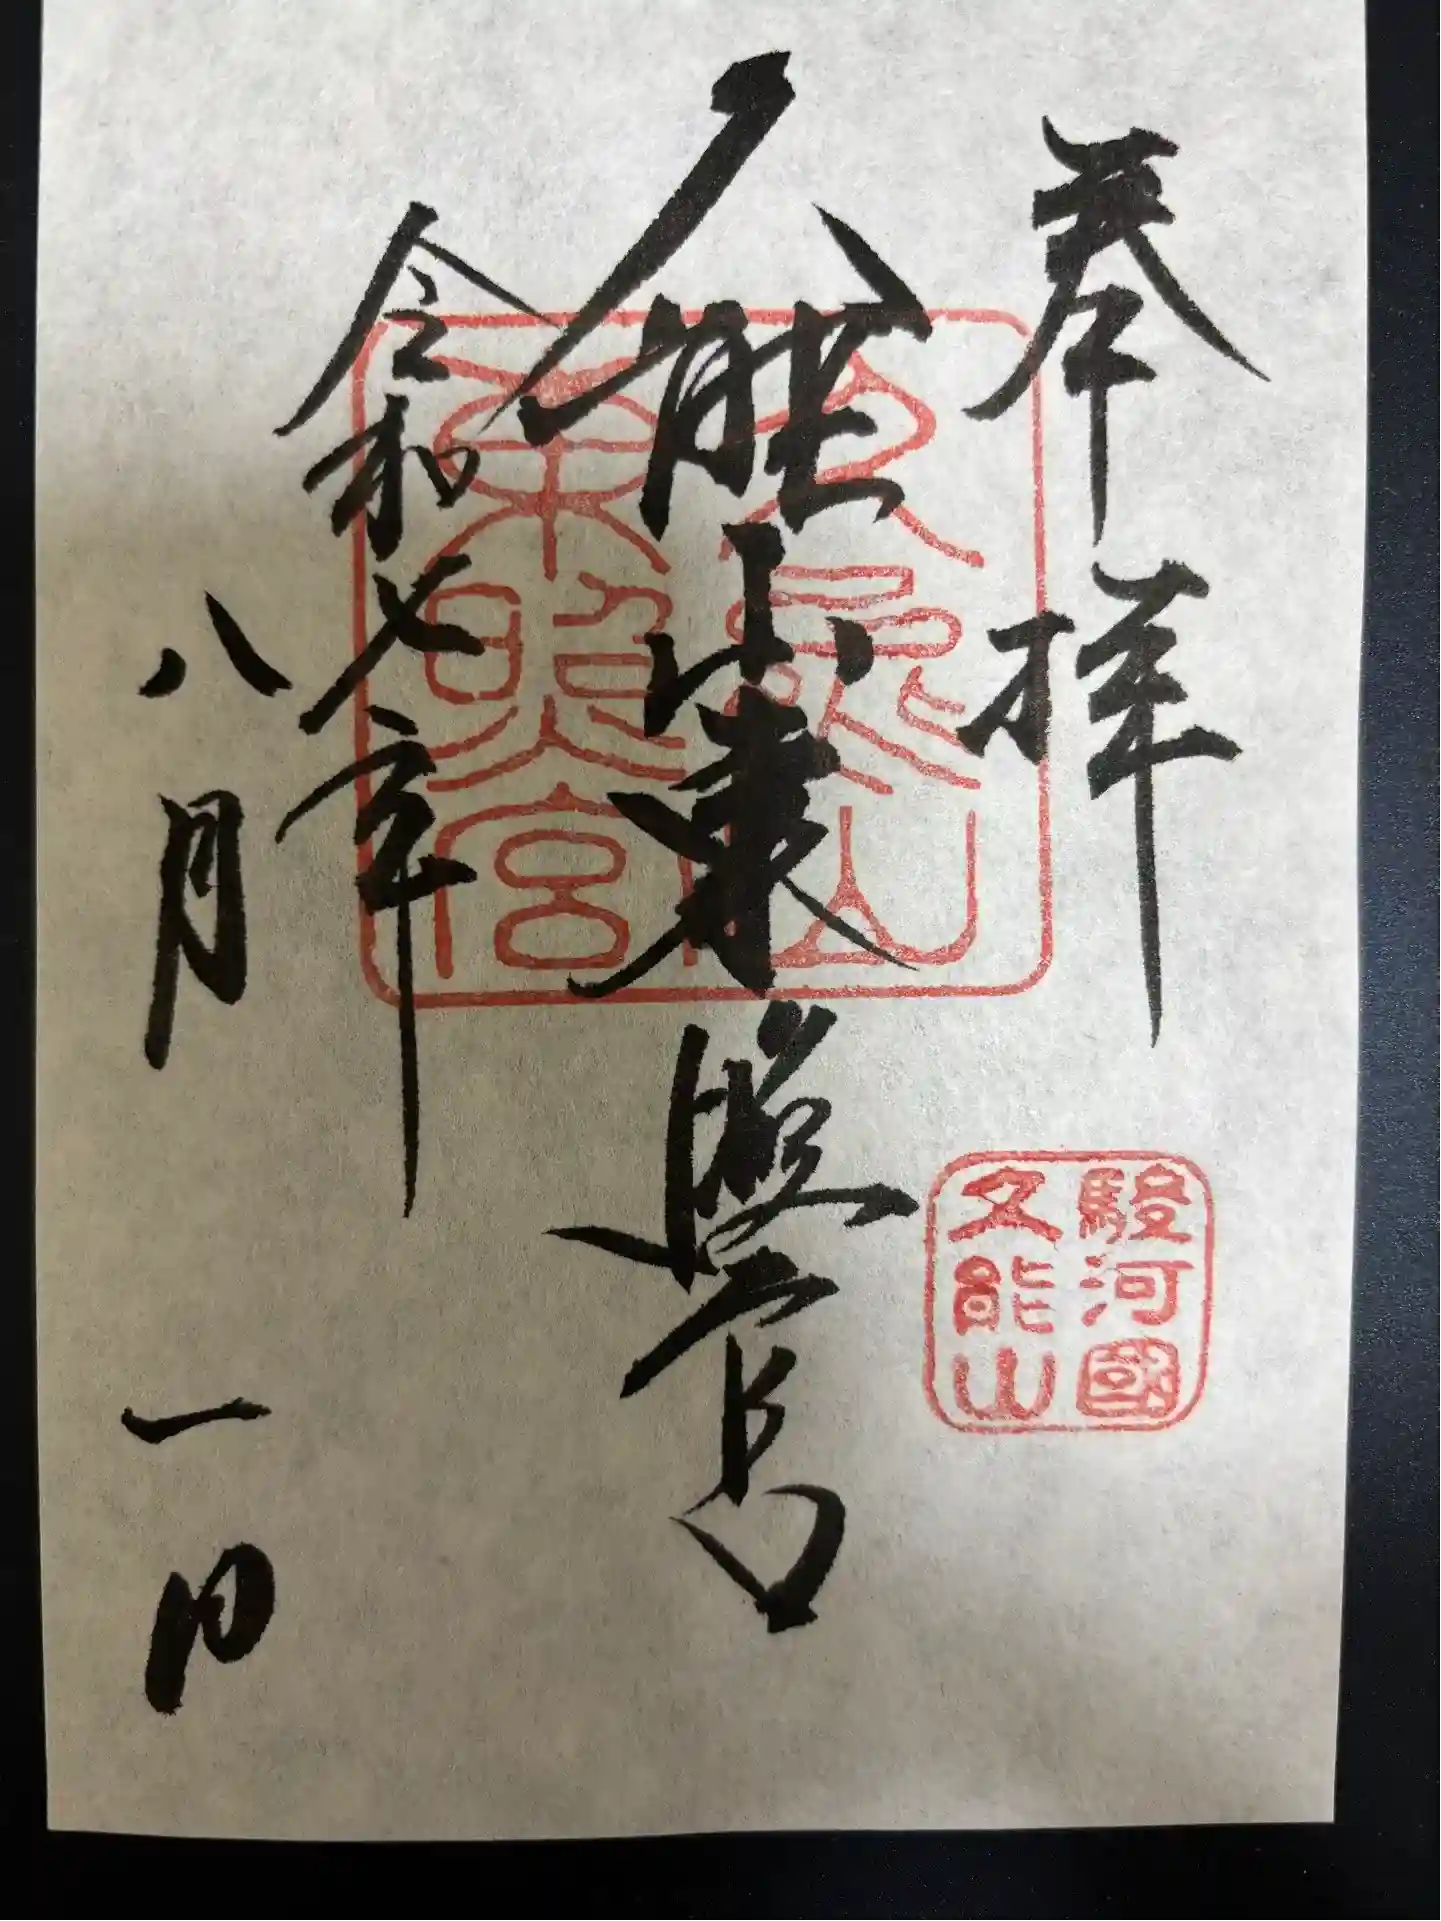 奉拝
駿河國
久能山
久能山東照宮
久能山
東照宮
令和七年
八月一日